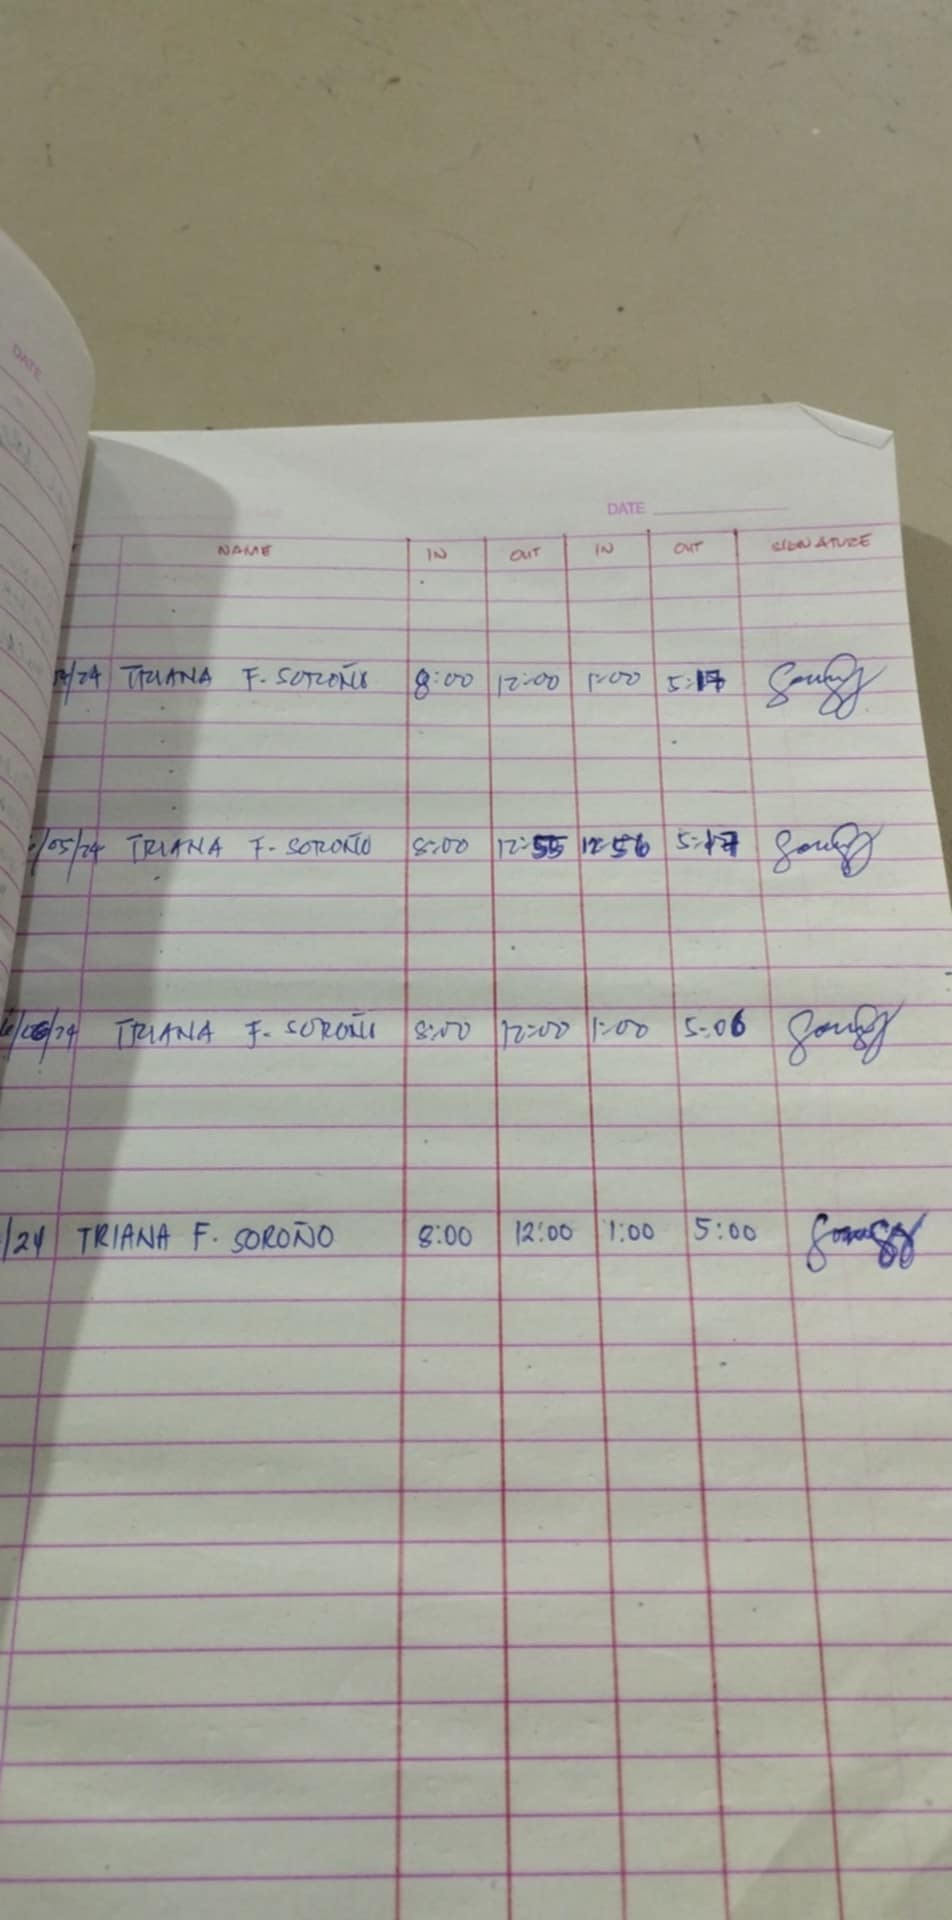 DATE
DATE
NAME IN OUT IN OUT SIGNATURE
/24 TRIANA F. SOROÑO 8:00 12:00 1:00 5:17
/05/24 TRIANA F. SOROÑO 8:00 12:55 12:56 5:17
6/06/24 TRIANA F. SOROÑO 8:00 12:00 1:00 5:06
/24 TRIANA F. SOROÑO 8:00 12:00 1:00 5:00